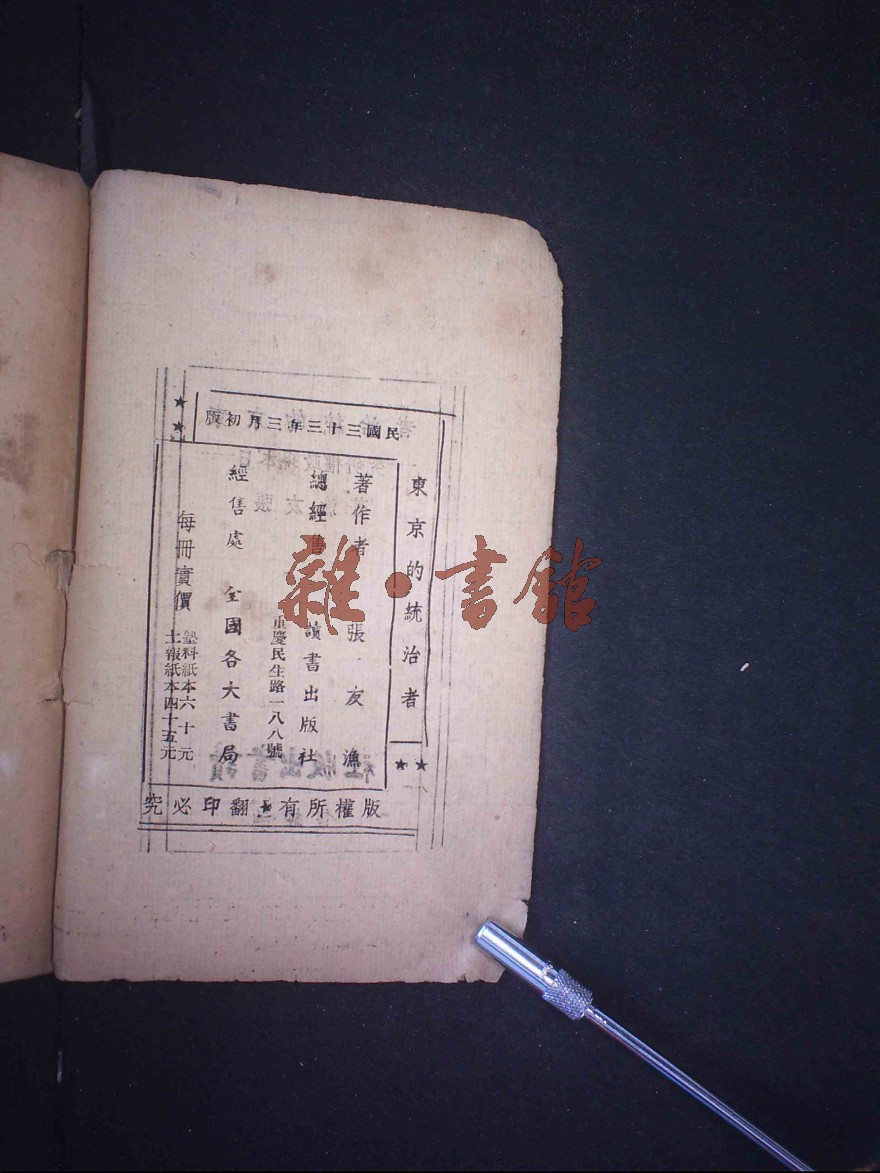 民國三十三年三月初版
東京的統治者
著作者 張友漁
總經售 讀書出版社
重慶民生路一八八號
經售處 全國各大書局
每冊實價
墊料紙本六十元
土報紙本四十五元
版權所有★翻印必究
雜·書館